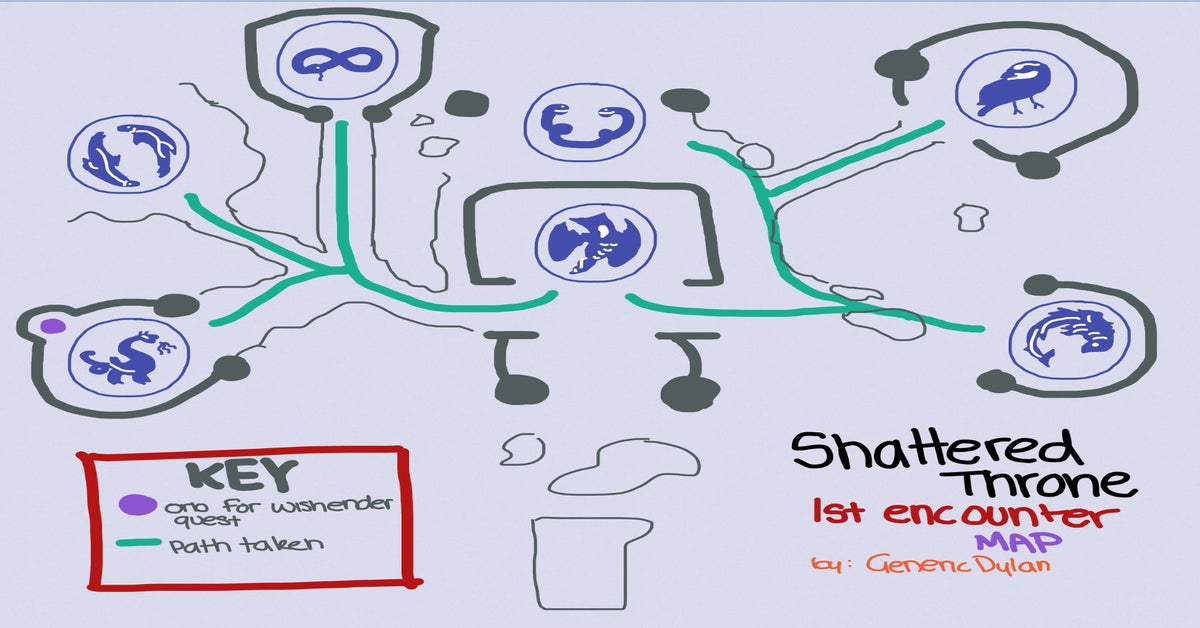 KEY
orb for wishender
quest
Path taken
Shattered
Throne
1st encounter
MAP
by: GenericDylan